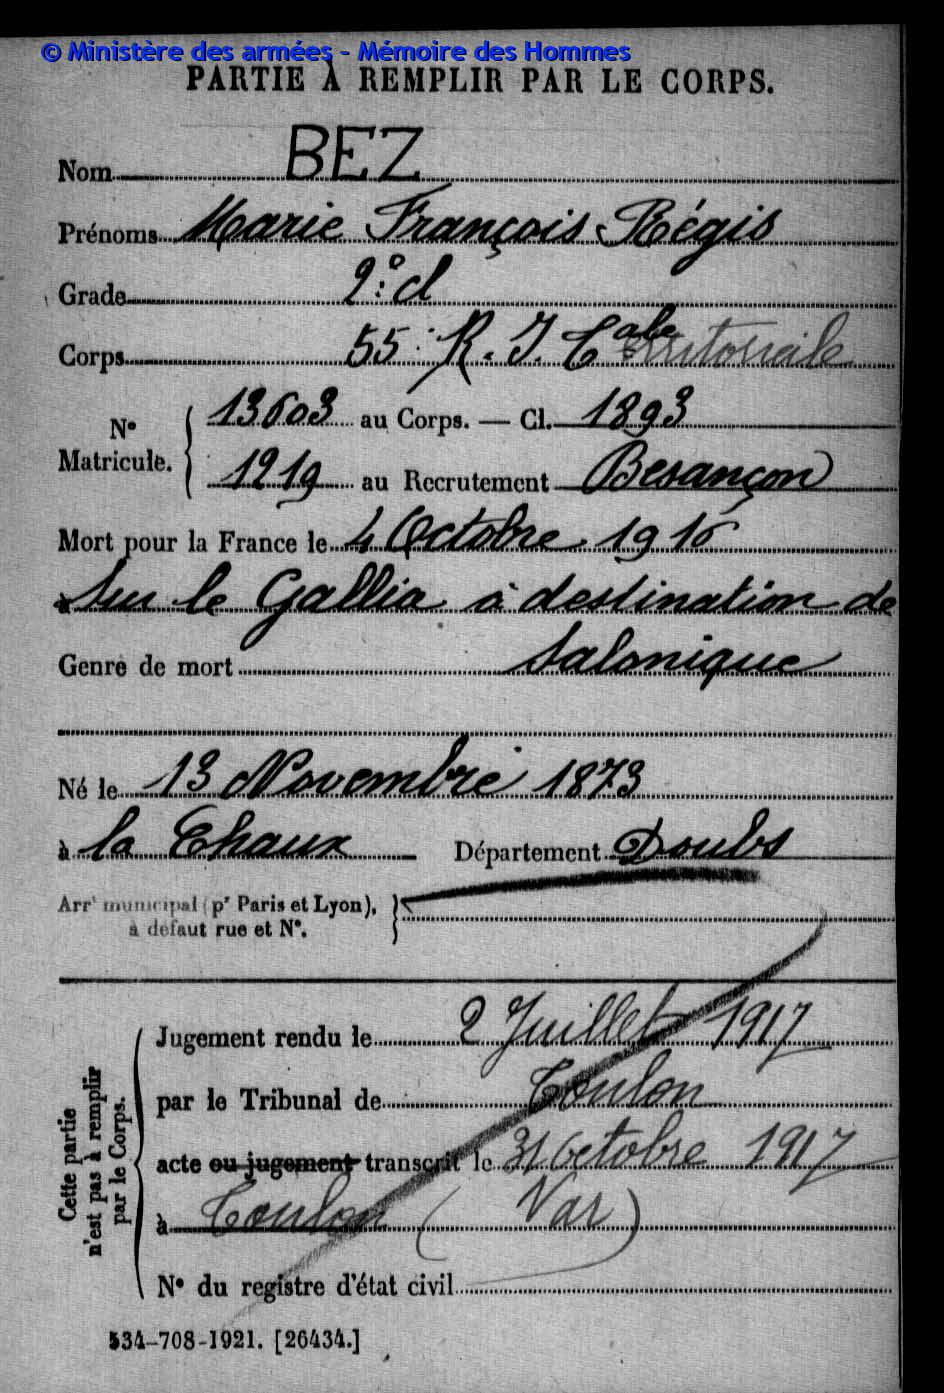 © Ministère des armées - Mémoire des Hommes
PARTIE À REMPLIR PAR LE CORPS.
Nom BEZ
Prénoms Marie François Régis
Grade 2e cl
Corps 55 R. I. Cale territoriale
No Matricule. 13603 au Corps. — Cl. 1893
1219 au Recrutement Besançon
Mort pour la France le 4 Octobre 1916
Sur le Gallia à destination de
Genre de mort Salonique
Né le 13 Novembre 1873
à la Chaux Département Doubs
Arrt municipal (pr Paris et Lyon),
à défaut rue et No.
Cette partie n'est pas à remplir par le Corps.
Jugement rendu le 2 Juillet 1917
par le Tribunal de Toulon
acte ou jugement transcrit le 31 Octobre 1917
à Toulon (Var)
No du registre d'état civil
534-708-1921. [26434.]